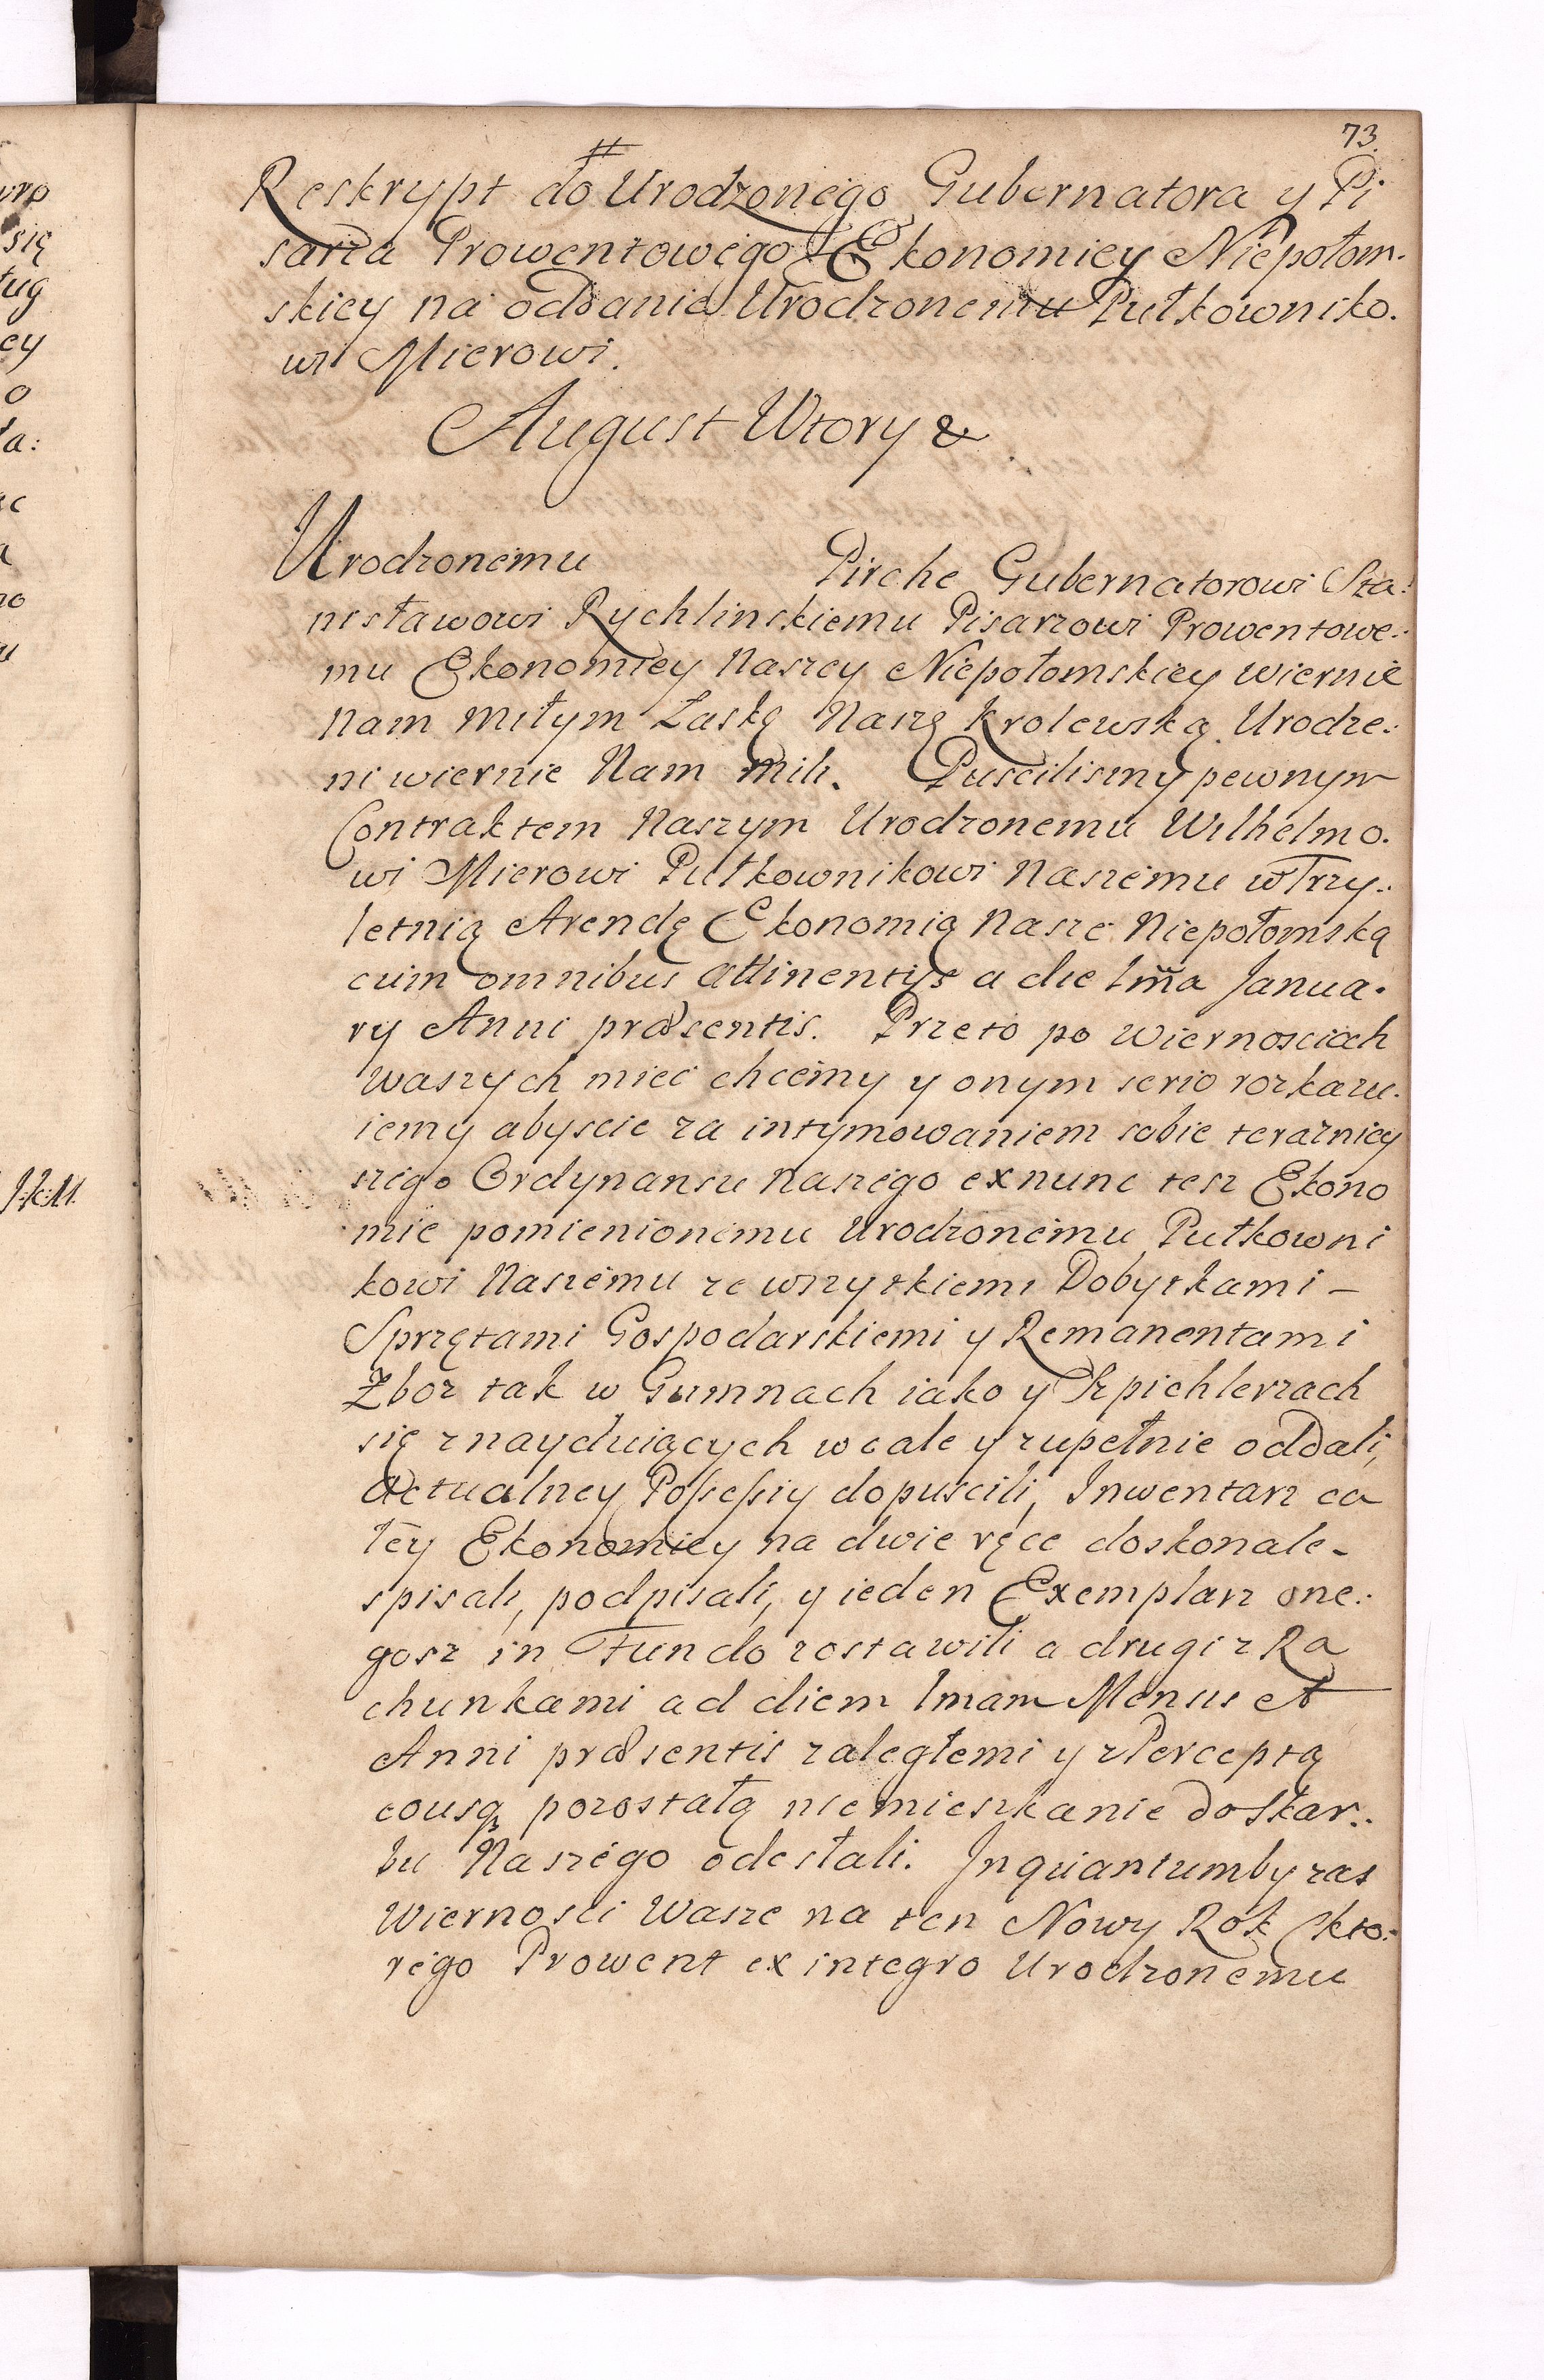 73.
#
Reskrypt do Urodzonego Gubernatora y Pi
sarza Prowentowego Ekonomiey Niepołom-
skiey na oddanie Urodzonemu Pułkowniko.
wi Mierowi.
August Wtory &.
Urodzonemu Pirche Gubernatorowi Sta:
nisławowi Rychlinskiemu Pisarzowi Prowentowe:
mu Ekonomiey Naszey Niepołomskiey wiernie
Nam miłym Łaskę Naszę Krolewską. Urodze:
ni wiernie Nam mili. Puscilismy pewnym
Contraktem Naszym Urodzonemu Wilhelmo.
wi Mierowi Pułkownikowi Naszemu w Trzy:
letnią Arendę Ekonomią Nasze Niepołomską
cum omnibus attinentijs a die 1ma Janua.
ry Anni præsentis. Przeto po Wiernosciach
Waszych miec chcemy y onym serio rozkazu.
iemy abyscie za intymowaniem sobie terazniey
szego Ordynansu Naszego ex nunc tesz Ekono
mie pomienionemu Urodzonemu Pułkowni
kowi Naszemu ze wszytkiemi Dobytkami –
Sprzętami Gospodarskiemi y Remanentami
Zboz tak w Gumnach iako y Szpichlerzach
się znayduiących wcale y zupełnie oddali,
actualney Possessiy dopuscili, Inwentarz ca
łey Ekonomiey na dwie ręce doskonale-
spisali, podpisali, y ieden Exemplarz one:
gosz in Fundo zostawili a drugi z Ra
chunkami ad diem 1mam Mensis et
Anni præsentis zaległemi y z Perceptą
eousq pozostałą niemieszkanie do Skar:
bu Naszego odesłali. Inquantumby zas
Wiernosci Wasze na ten Nowy Rok (kto:
rego Prowent ex integro Urodzonemu
uro
się
ług
ey
o
ła:
sc
a
no
u
J:K:M.